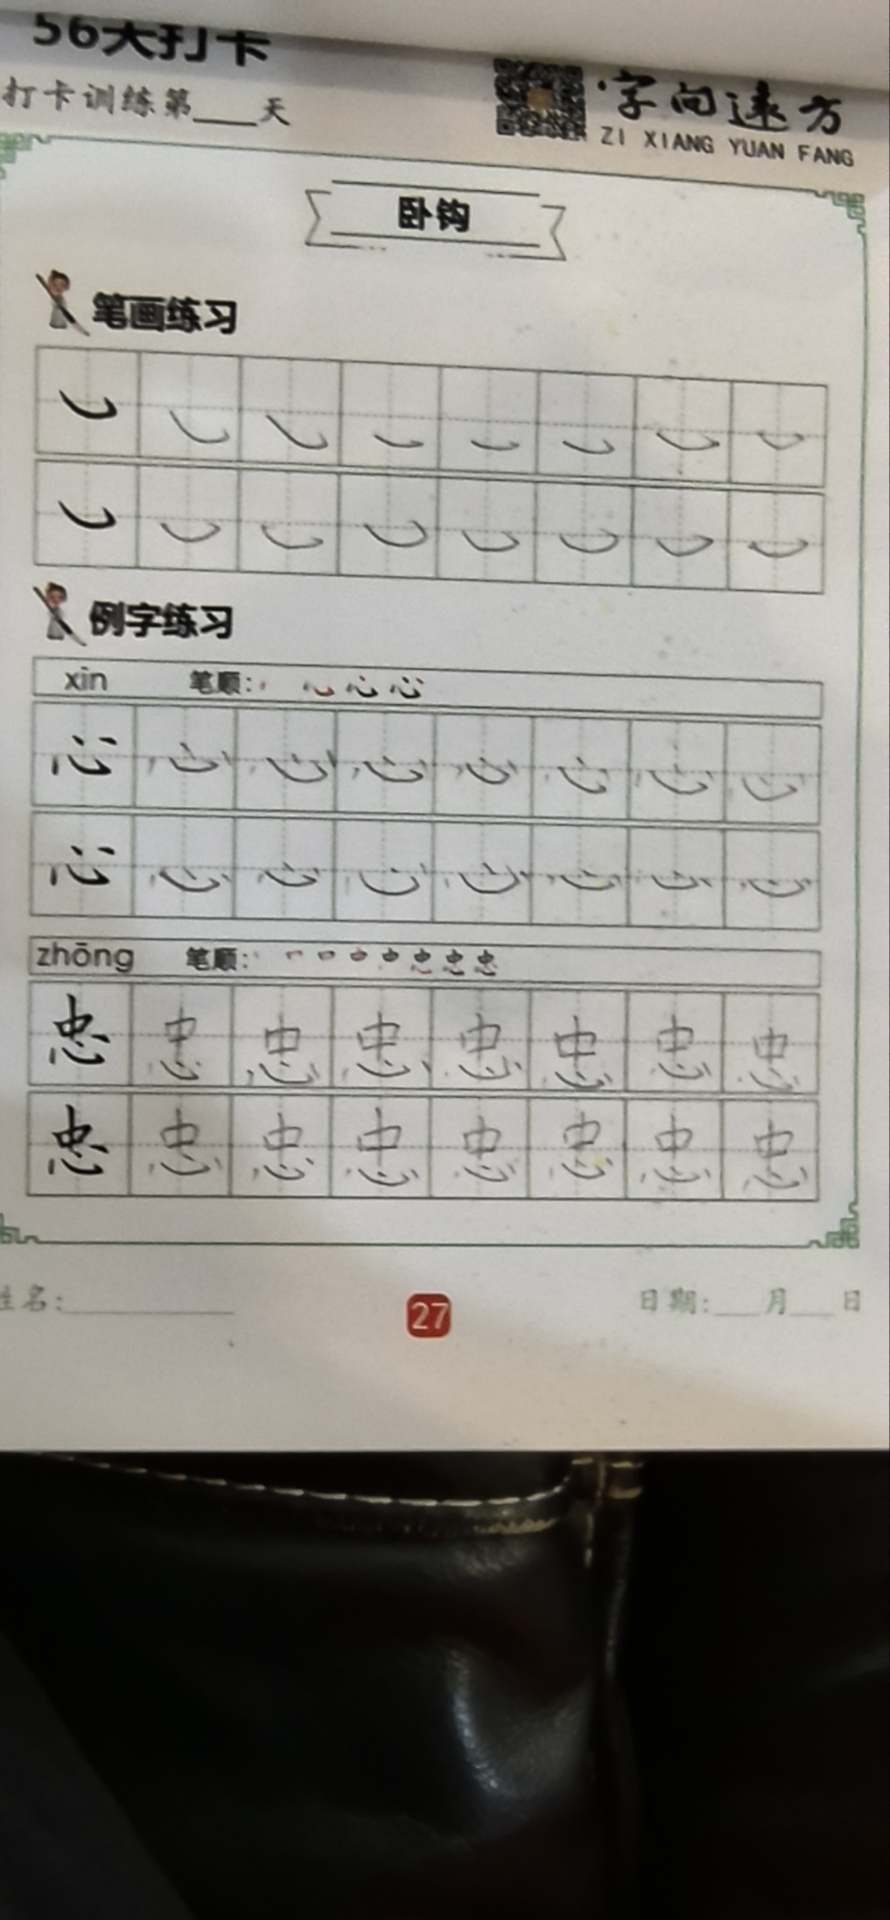 56天打卡
打卡训练第___天
字向远方
ZI XIANG YUAN FANG
卧钩
笔画练习
例字练习
xīn 笔顺:
心 心 心 心 心 心 心 心
心 心 心 心 心 心 心 心
zhōng 笔顺:
忠 忠 忠 忠 忠 忠 忠 忠
忠 忠 忠 忠 忠 忠 忠 忠
姓名:___________
27
日期:___月___日